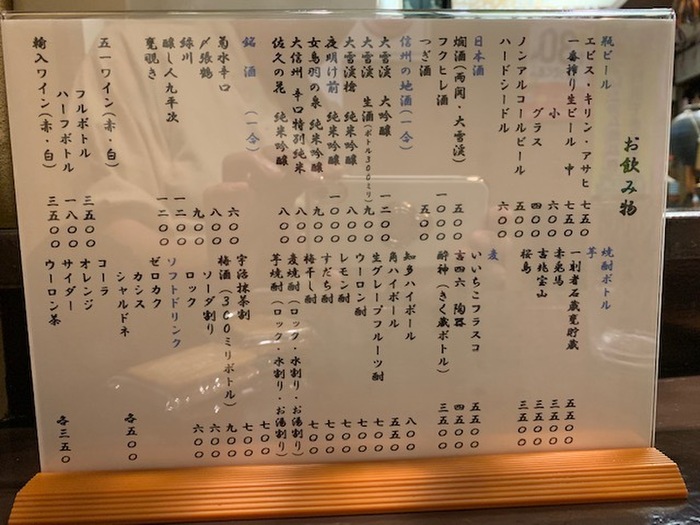 お飲み物
瓶ビール
エビス・キリン・アサヒ 七五〇
一番搾り生ビール 中 七五〇
小 六〇〇
グラス 四〇〇
ノンアルコールビール 五〇〇
ハードシードル 六〇〇
日本酒
燗酒(両関・大雪渓) 五〇〇
フクヒレ酒 一〇〇〇
つぎ酒 五〇〇
信州の地酒(一合)
大雪渓 大吟醸 一二〇〇
大雪渓 生酒(ボトル300ミリ) 九〇〇
大雪渓槍 純米吟醸 八〇〇
夜明け前 純米吟醸 一〇〇〇
女鳥羽の泉 純米吟醸 九〇〇
大信州 辛口特別純米 八〇〇
佐久の花 純米吟醸 八〇〇
銘酒(一合)
菊水辛口 六〇〇
〆張鶴 八〇〇
緑川 九〇〇
醸し人九平次 一二〇〇
甕覗き 一二〇〇
五一ワイン(赤・白)
フルボトル 三五〇〇
ハーフボトル 一八〇〇
輸入ワイン(赤・白) 三五〇〇
焼酎ボトル
芋
一刻者石蔵甕貯蔵 五五〇〇
赤兎馬 三五〇〇
吉兆宝山 三五〇〇
桜島 三五〇〇
麦
いいちこフラスコ 五五〇〇
吉四六 陶器 四五〇〇
酔神(きく蔵ボトル) 三五〇〇
知多ハイボール 八〇〇
角ハイボール 五五〇
生グレープフルーツ酎 七〇〇
ウーロン酎 七〇〇
レモン酎 七〇〇
すだち酎 七〇〇
梅干し酎 七〇〇
麦焼酎(ロック・水割り・お湯割り) 七〇〇
芋焼酎(ロック・水割り・お湯割り) 七〇〇
宇治抹茶割 七〇〇
梅酒(300ミリボトル) 九〇〇
ソーダ割り 六〇〇
ロック 六〇〇
ソフトドリンク
ゼロカク
カシス
シャルドネ 各五〇〇
コーラ
オレンジ
サイダー
ウーロン茶 各三五〇